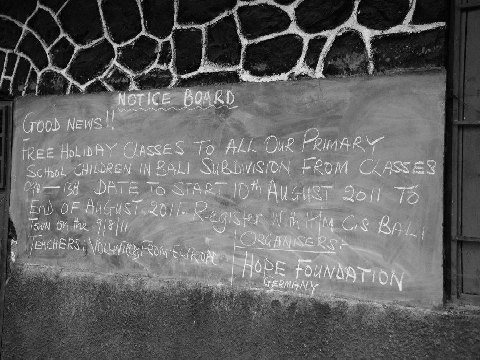 NOTICE BOARD
GOOD NEWS!!
FREE HOLIDAY CLASSES TO ALL OUR PRIMARY
SCHOOL CHILDREN IN BALI SUBDIVISION FROM CLASSES
DATE TO START 10th AUGUST 2011 TO
End OF AUGUST, 2011. Register With H/M C.S BALI
Town on the 9/8/11
TEACHERS: VOLUNTEER FROM EUROPE
ORGANISERS:-
HOPE FOUNDATION
GERMANY